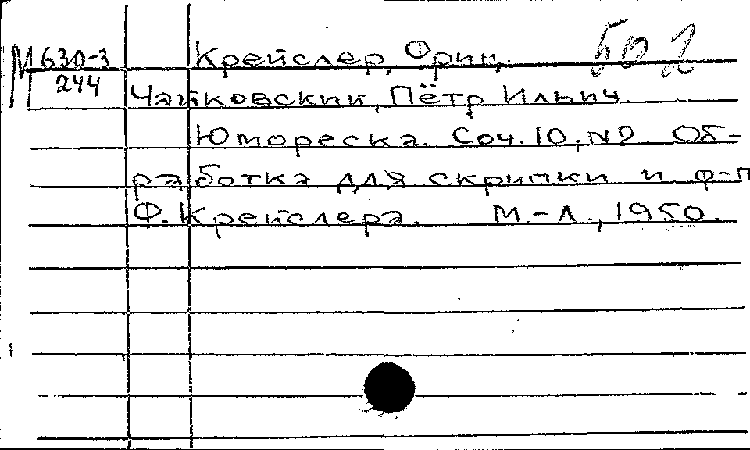 М 630-3
244
Крейслер, Фриц.
502
Чайковский, Пётр Ильич.
Юмореска. Соч. 10, №2 Об-
работка для скрипки и ф-п
Ф. Крейслера. М.-Л., 1950.